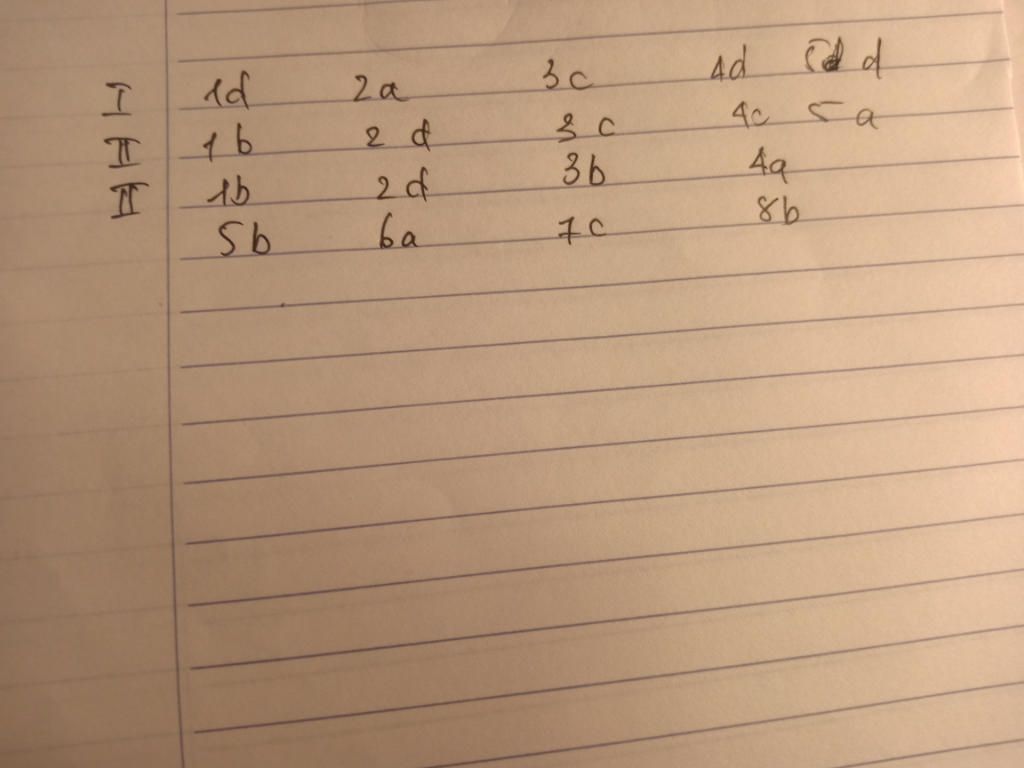 I 1d 2a 3c 4d d
II 1b 2 d 3 c 4c 5 a
II 1b 2d 3b 4a
5b 6a 7c 8b